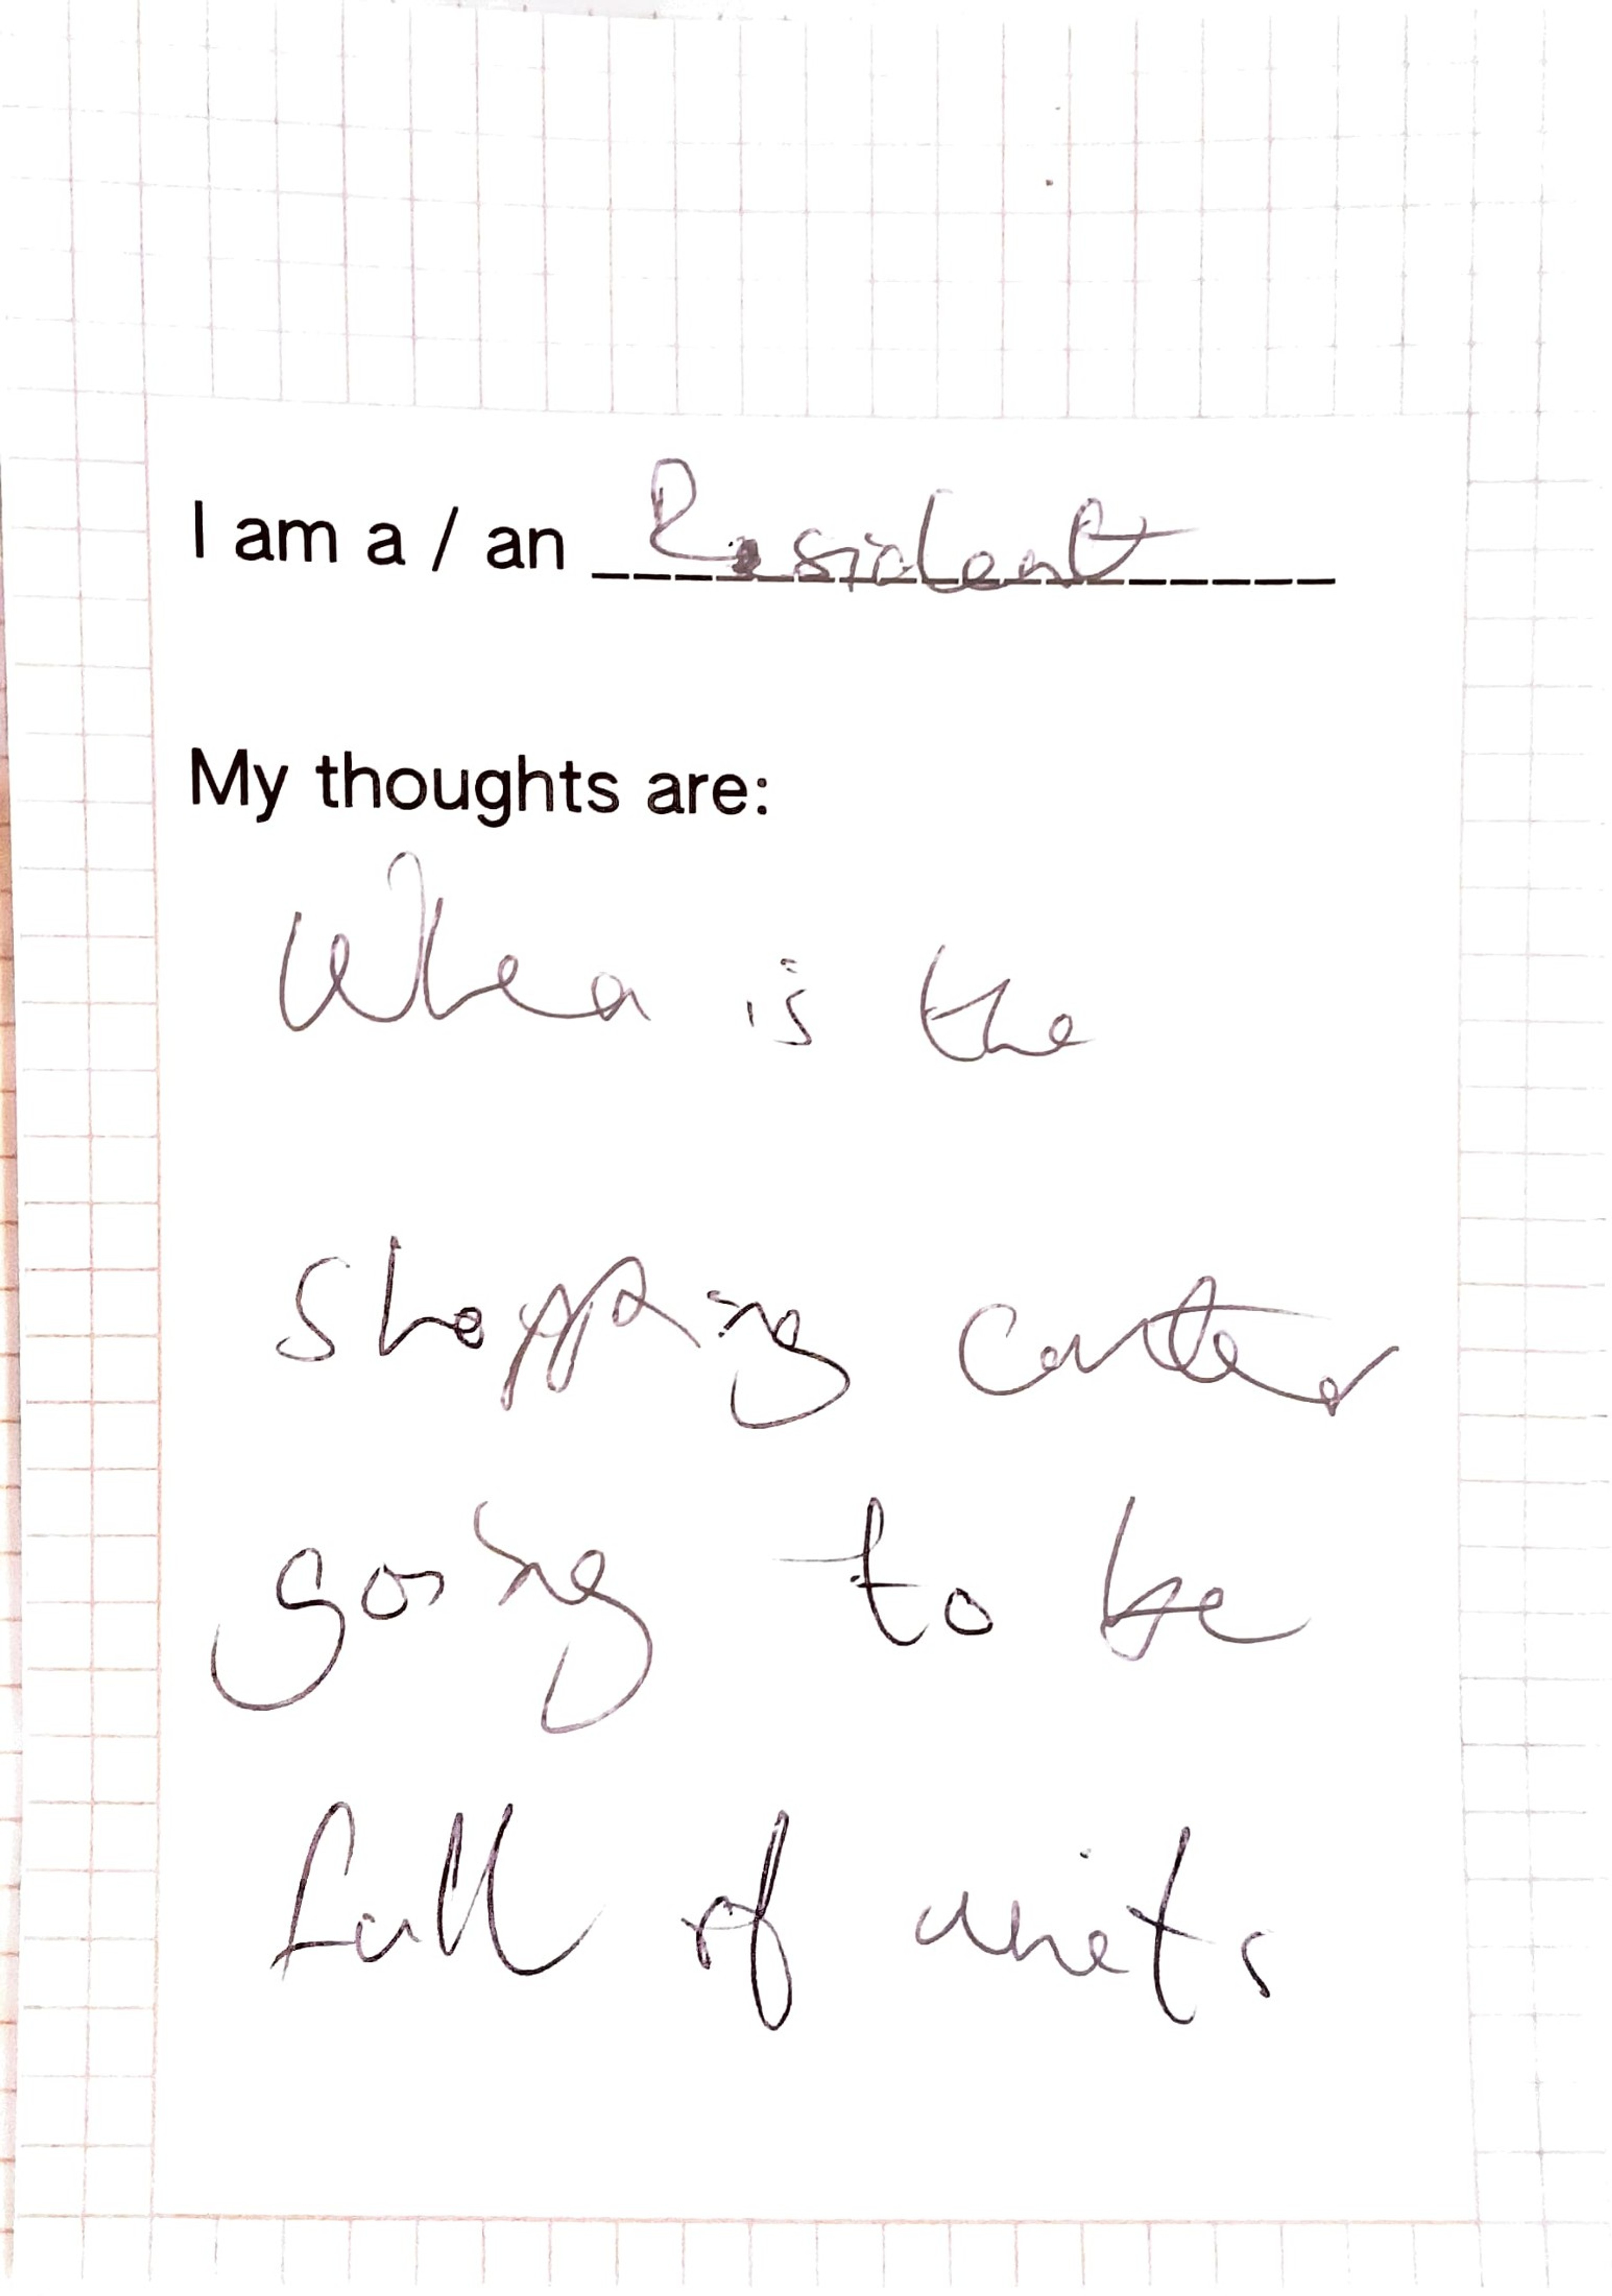 I am a / an Resident
My thoughts are:
When is the
shopping center
going to be
full of units